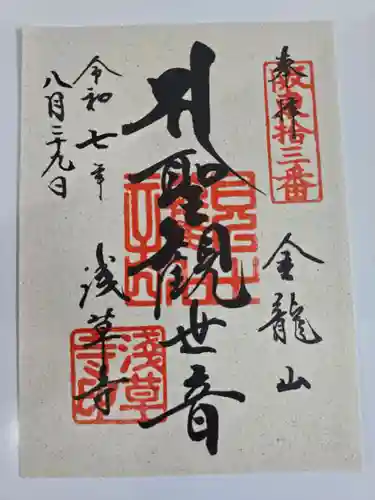 奉拝
坂東拾三番
金龍山
聖観世音
浅草寺
令和七年
八月二十九日